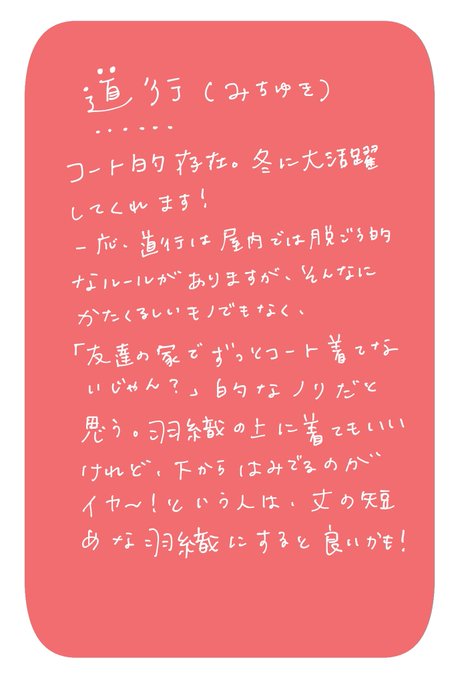 道行(みちゆき)
コート的存在。冬に大活躍
してくれます!
一応、道行は屋内では脱ごう的
なルールがありますが、そんなに
かたくるしいモノでもなく、
「友達の家でずっとコート着てな
いじゃん?」的なノリだと
思う。羽織の上に着てもいい
けれど、下からはみでるのが
イヤ〜!という人は、丈の短
めな羽織にすると良いかも!